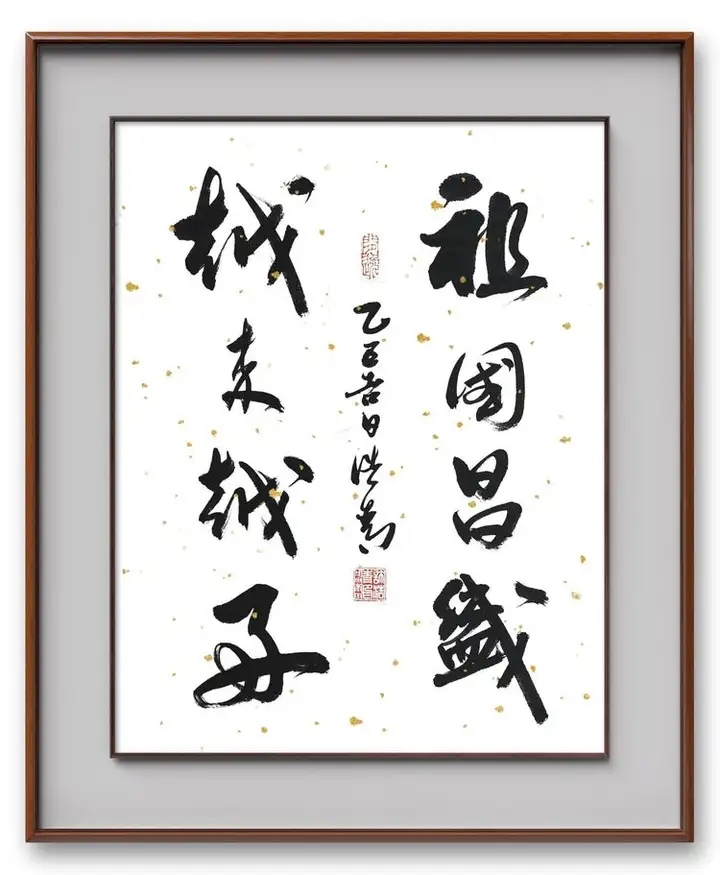 祖國昌盛
越来越好
乙巳吉日